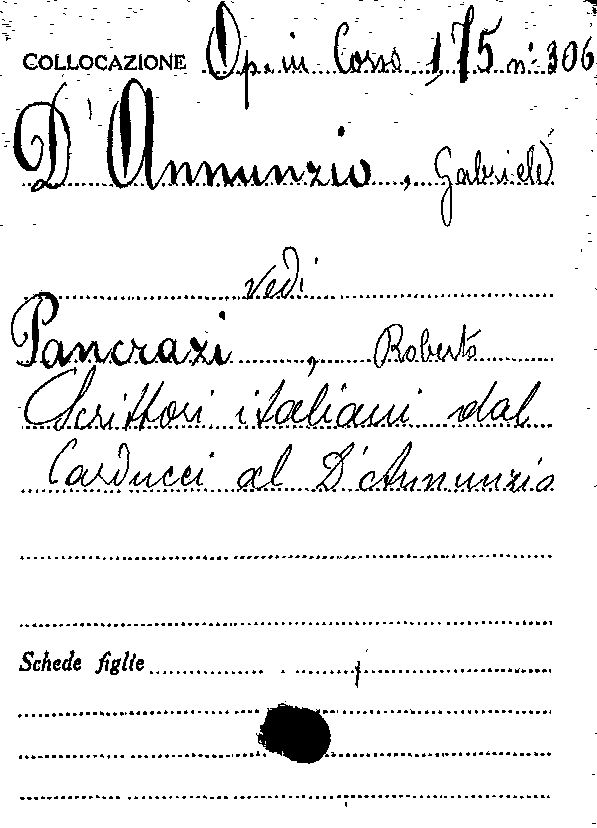 COLLOCAZIONE Op. in Corso 175 n. 306
D'Annunzio, Gabriele
vedi
Pancrazi, Roberto
Scrittori italiani dal
Carducci al D'Annunzio
Schede figlie